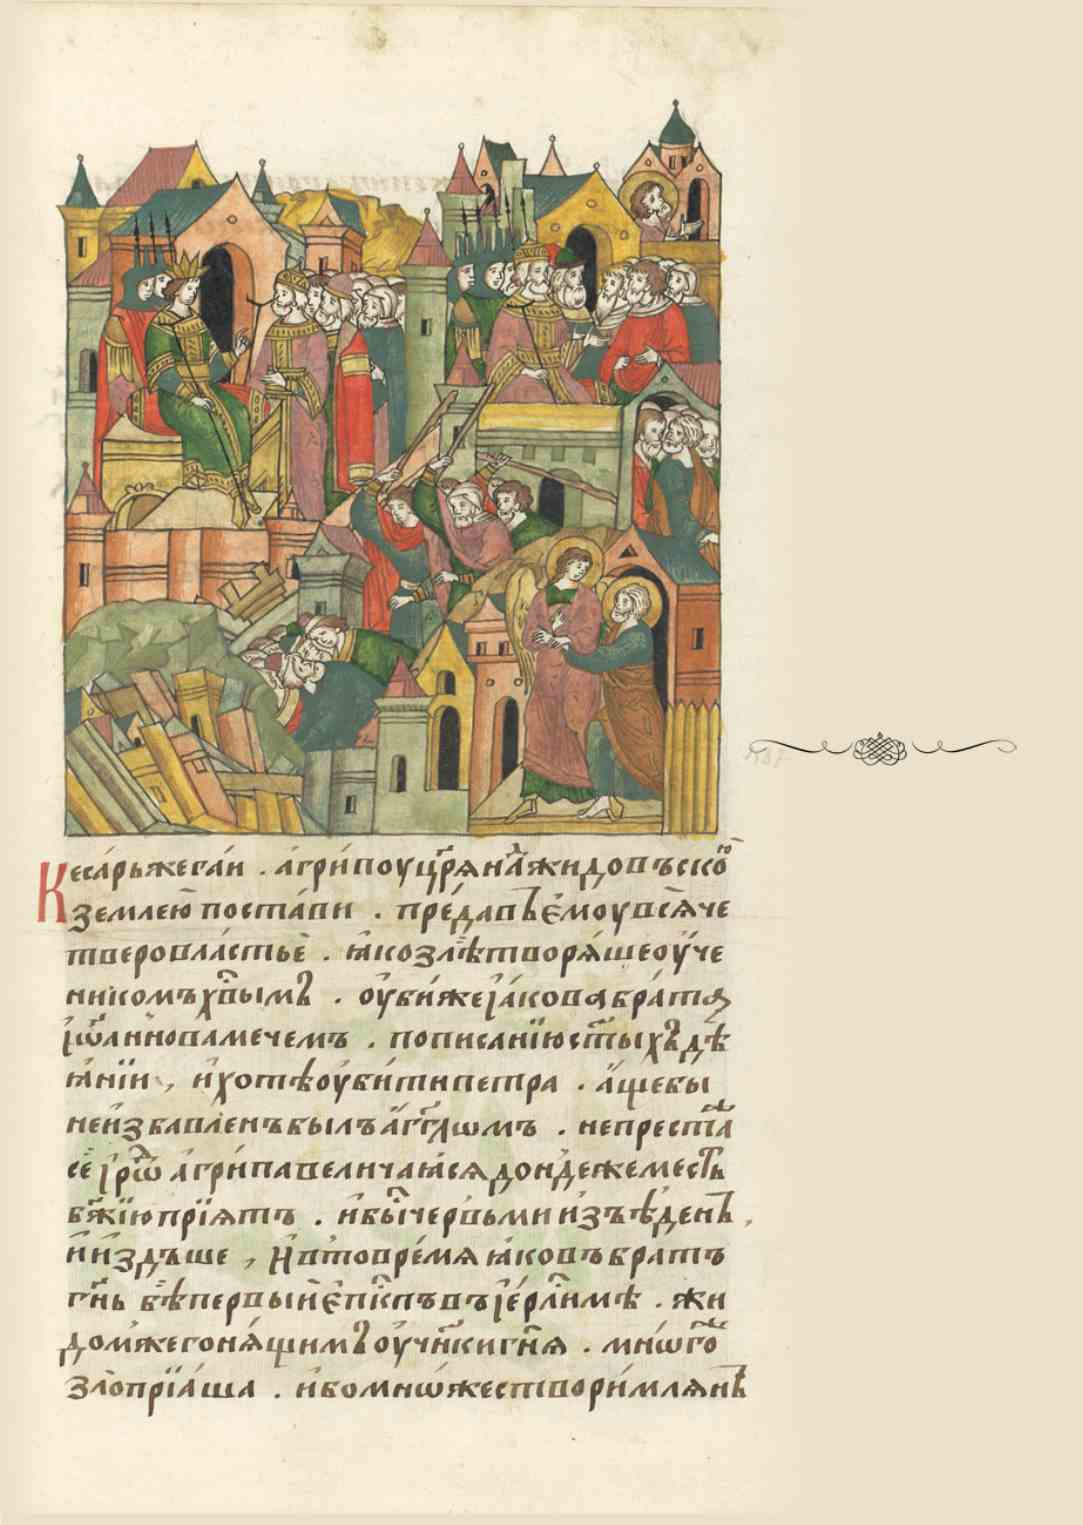 Кеса́рьжегаи . а́гри́поуцр҃ѧна́джидовъско́ю
землею поста́ви . преда́въ є҆моувсѧ̀че
тверовла́стьѐ . ꙗ҆козлѣ̀творѧ́шеоу҆че
никомъхв҃ымъ . оу҆би́жеꙗ҆́коваѡбра́та
і҆ѡ҃анноваме́чемъ . пописа́нїюст҃ыхъдѣ
ꙗ҆́нїи , и҆хотѣ̀оу҆би́типетра . а҆́щебы
неи҆збавле́нъбылъа҆́гг҃лѡмъ . непреста̀
сѐ і҆́рѡд а҆гри́павелича́ꙗсѧдон́дежеме́сть
бж҃їюпрїѧ́тъ . и҆бы́червьмии҆зъѣ̀денъ ,
и҆и҆́здъше , И҆втовре́мѧ ꙗ҆́ковъбратъ
гн҃ь бѣ̀первыи҆є҆пк҃пъвъі҆єрл҃и́мѣ . жи
домъжегонѧ́щимъоу҆чн҃кигн҃ѧ . мнѡ́го
злопрїа́ша . и҆бомнѡ́жествори́млѧнъ